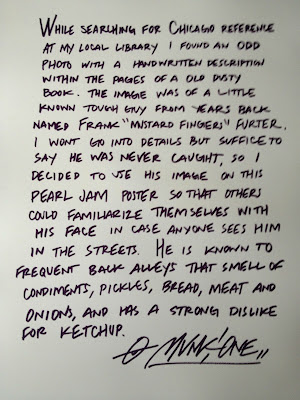 WHILE SEARCHING FOR CHICAGO REFERENCE
AT MY LOCAL LIBRARY I FOUND AN ODD
PHOTO WITH A HANDWRITTEN DESCRIPTION
WITHIN THE PAGES OF A OLD DUSTY
BOOK. THE IMAGE WAS OF A LITTLE
KNOWN TOUGH GUY FROM YEARS BACK
NAMED FRANK "MUSTARD FINGERS" FURTER.
I WONT GO INTO DETAILS BUT SUFFICE TO
SAY HE WAS NEVER CAUGHT, SO I
DECIDED TO USE HIS IMAGE ON THIS
PEARL JAM POSTER SO THAT OTHERS
COULD FAMILIARIZE THEMSELVES WITH
HIS FACE IN CASE ANYONE SEES HIM
IN THE STREETS. HE IS KNOWN TO
FREQUENT BACK ALLEYS THAT SMELL OF
CONDIMENTS, PICKLES, BREAD, MEAT AND
ONIONS, AND HAS A STRONG DISLIKE
FOR KETCHUP.
MUNK ONE